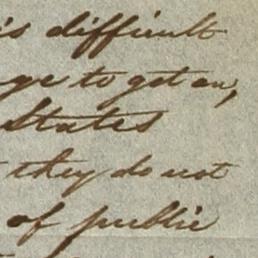 is difficult
ge to get on,
States
they do not
of public